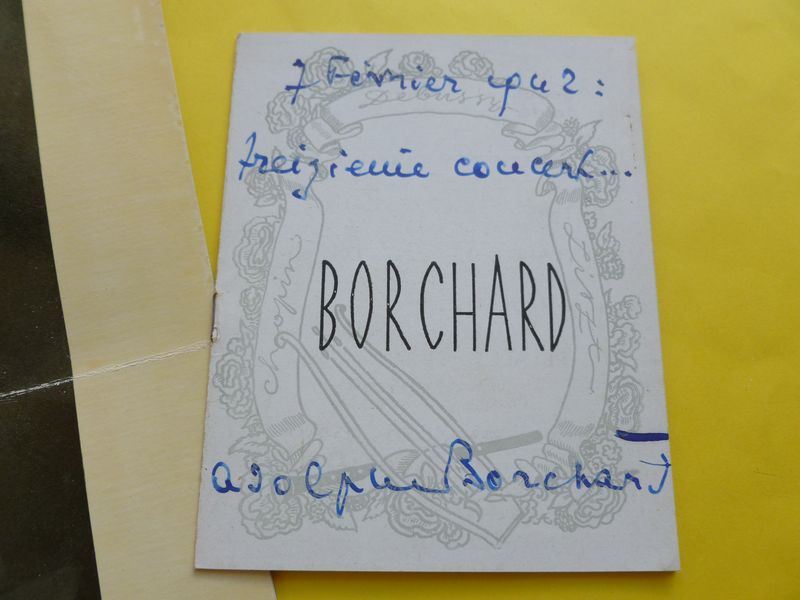 7 Février 1942 :
Debussy
treizieme concert...
Chopin
Liszt
BORCHARD
Adolphe Borchard